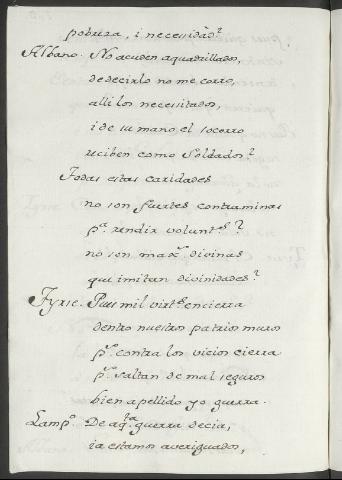 pobreza, i necesidad?
Albano. No acuden aquadrillados,
de decirlo no me corro,
alli los necesitados,
i de su mano el socorro
reciben como Soldados?
Todas estas caridades
no son fuertes contraminas
pa. rendir volunts.?
no son maxs. divinas
que imitan divinidades?
Tyrse. Pues mil virts. encierra
dentro nuestros patrios muros
ps. contra los vicios cierra
ps. saltan de mal seguros
bien apellido yo guerra.
Lampo. De aqta. guerra decia,
ia estamos averiguados,